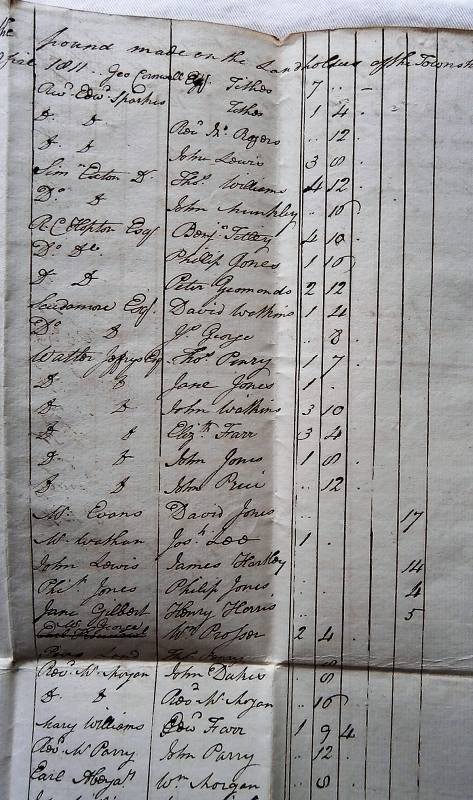 the
pound made on the Landholders of the Township
1811
Geo Cornwall Esq. Tithes 7 .. -
Revd. Edwd. Sparkes Tithes 1 4 .
Do Do Revd. Mr. Rogers .. 12 .
Do Do John Lewis 3 8 .
Sim Exton Do. Thos. Williams 4 12 .
Do. Do John Mumbley .. 16 .
R C Hopton Esq. Benjn. Tilley 4 10 .
Do. Do. Philip Jones 1 16
Do Do Peter 2 12
Scudamore Esq. David Watkins 1 4
Do. Do Js. George .. 8 .
Walter Jeffreys Esq Thos. Penry 1 7 .
Do Do Jane Jones 1 .
Do Do John Watkins 3 10
Do Do Elizth. Farr 3 4
Do Do John Jones 1 8
Do Do John Price .. 12
Mr. Evans David Jones 17
Mr Wathan Josh. Lee 1 .
John Lewis James Hartley 14
Phip. Jones Philip Jones 4
Jane Gilbert Henry Harris 5
Mr George Wm Prosser 2 4 .
Revd. Mr. Morgan John Dakes 8
Do Do Revd. Mr. Morgan .. 16
Mary Williams Edwd. Farr 1 9 4
Revd. Mr Parry John Parry .. 12 .
Earl Wm. Morgan .. 8